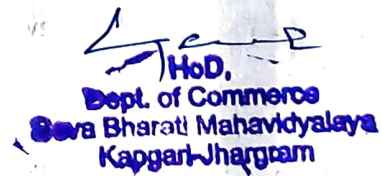 HoD.
Dept. of Commerce
Seva Bharati Mahavidyalaya
Kapgari-Jhargram